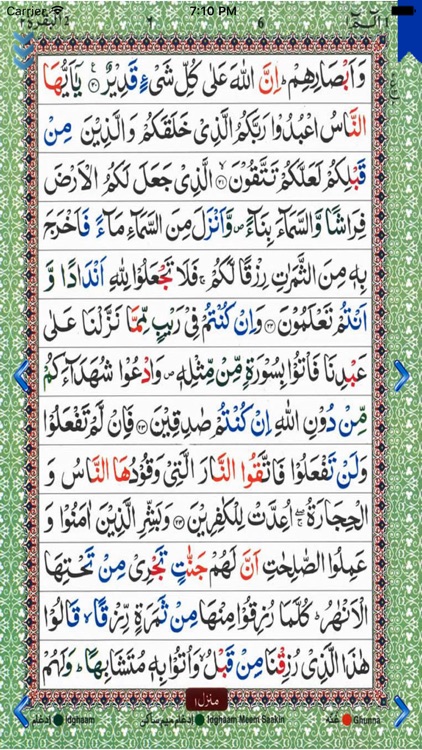 Carrier 7:10 PM
البقرة ٢ ٦ 6 الٓمّٓ ١
وَاَبْصَارِهِمْ ؕ اِنَّ اللّٰهَ عَلٰى كُلِّ شَیْءٍ قَدِیْرٌ ﴿۲۰﴾ یٰۤاَیُّهَا
النَّاسُ اعْبُدُوْا رَبَّكُمُ الَّذِیْ خَلَقَكُمْ وَالَّذِیْنَ مِنْ
قَبْلِكُمْ لَعَلَّكُمْ تَتَّقُوْنَ ﴿۲۱﴾ الَّذِیْ جَعَلَ لَكُمُ الْاَرْضَ
فِرَاشًا وَّالسَّمَآءَ بِنَآءً ۪ وَّاَنْزَلَ مِنَ السَّمَآءِ مَآءً فَاَخْرَجَ
بِهٖ مِنَ الثَّمَرٰتِ رِزْقًا لَّكُمْ ۚ فَلَا تَجْعَلُوْا لِلّٰهِ اَنْدَادًا وَّ
اَنْتُمْ تَعْلَمُوْنَ ﴿۲۲﴾ وَاِنْ كُنْتُمْ فِیْ رَیْبٍ مِّمَّا نَزَّلْنَا عَلٰى
عَبْدِنَا فَاْتُوْا بِسُوْرَةٍ مِّنْ مِّثْلِهٖ ۪ وَادْعُوْا شُهَدَآءَكُمْ
مِّنْ دُوْنِ اللّٰهِ اِنْ كُنْتُمْ صٰدِقِیْنَ ﴿۲۳﴾ فَاِنْ لَّمْ تَفْعَلُوْا
وَلَنْ تَفْعَلُوْا فَاتَّقُوا النَّارَ الَّتِیْ وَقُوْدُهَا النَّاسُ وَ
الْحِجَارَةُ ۖۚ اُعِدَّتْ لِلْكٰفِرِیْنَ ﴿۲۴﴾ وَبَشِّرِ الَّذِیْنَ اٰمَنُوْا وَ
عَمِلُوا الصّٰلِحٰتِ اَنَّ لَهُمْ جَنّٰتٍ تَجْرِیْ مِنْ تَحْتِهَا
الْاَنْهٰرُ ؕ كُلَّمَا رُزِقُوْا مِنْهَا مِنْ ثَمَرَةٍ رِّزْقًا ۙ قَالُوْا
هٰذَا الَّذِیْ رُزِقْنَا مِنْ قَبْلُ ۙ وَاُتُوْا بِهٖ مُتَشَابِهًا ؕ وَلَهُمْ
منزل ١
ادغام Idghaam ادغام میم ساکن Idghaam Meem Saakin غنہ Ghunna